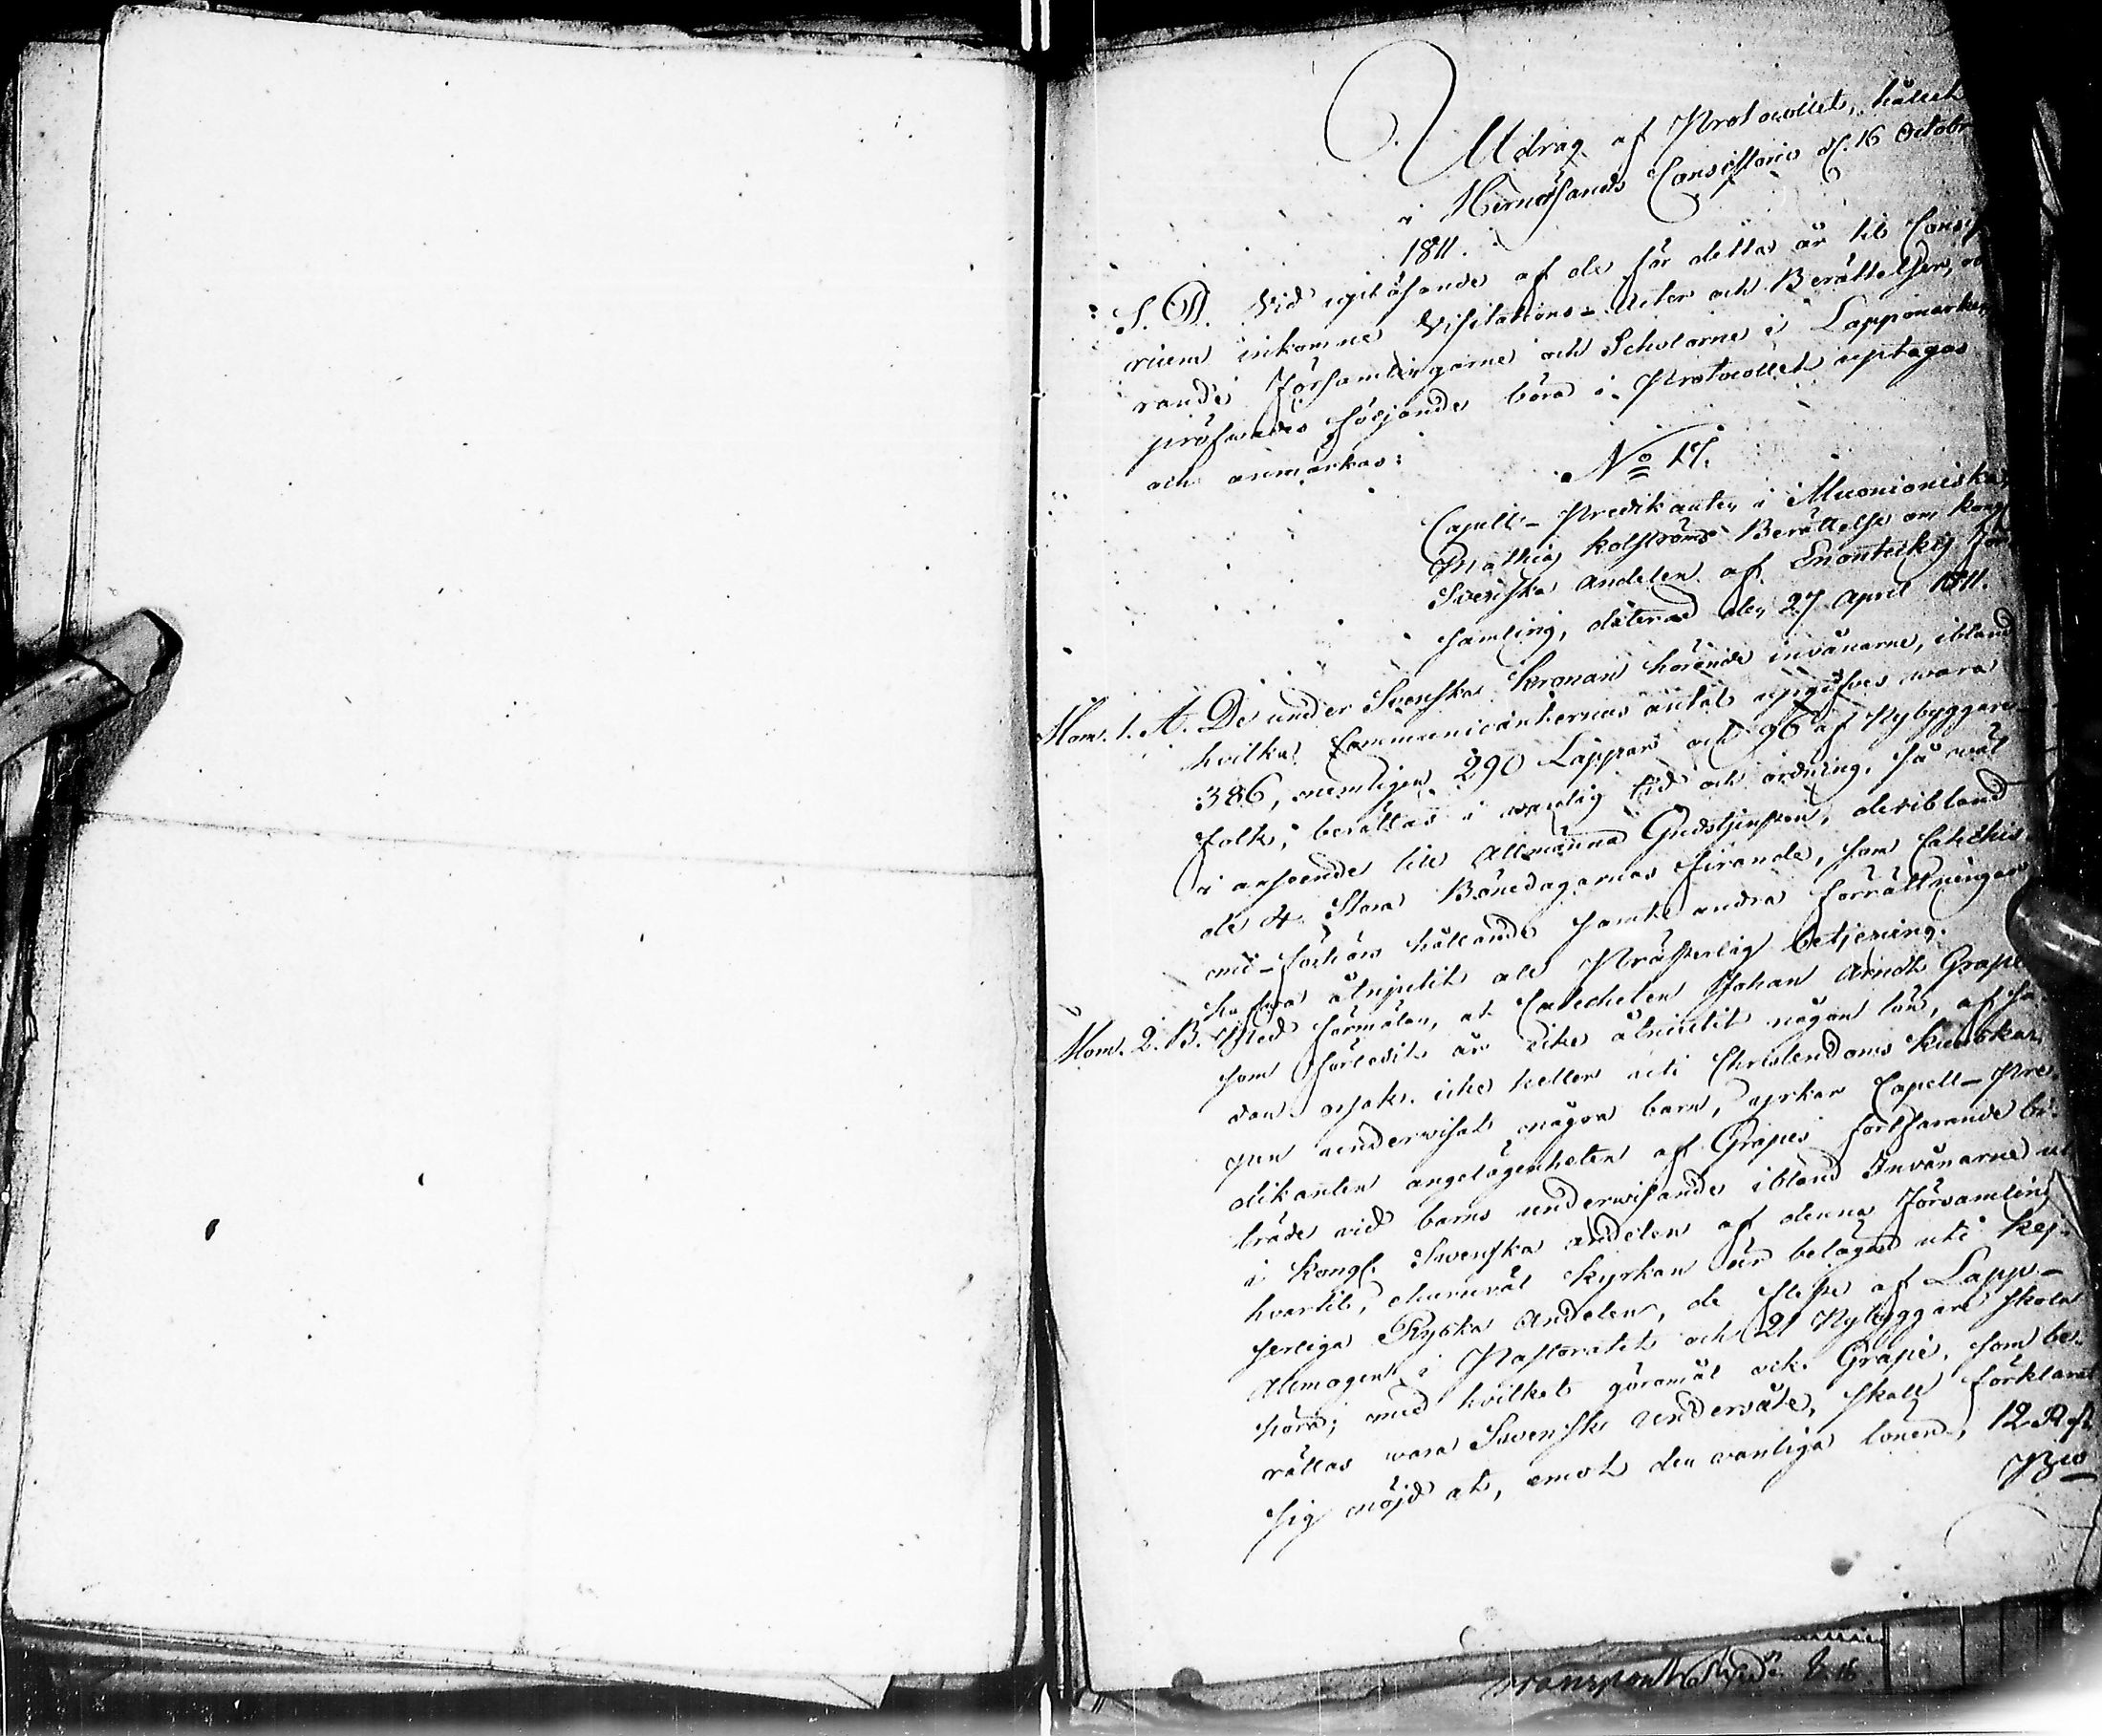 Utdrag af Protocollet, hållet
i Hernösands Consistorio d. 16 Octobr
1811.
S. D. Vid upläsande af de för detta år til Consisto
rium inkomne Visitations-Acter och Berättelser, rö
rande Församlingarne och Scholarne i Lappmarken
pröfwades följande böra i Protocollet uptagas
och anmärkas:
No 17.
Capell-Predikanten i Muonioniska,
Mathias Kolströms Berättelse om Kongl.
Svenska Andelen af Enontekis För
samling, daterad den 27 April 1811.
Mom. 1. A. De under Svenska Kronan hörande invånarne, ibland
hvilka Communicanternas antal upgifves wara
386, nemligen 290 Lappar och 96 af Nybyggare
folk, berättas i vanlig tid och ordning, så wäl
i anseende till Allmänna Gudstjensten, deribland
de 4 Stora Bönedagarnas firande, som Catechis
mi-förhörs hållande samt andra förrättningar
hafwa åtnjutit all Prästerlig betjening.
Mom. 2. B. Med förmälan, at Catecheten Johan Arndt Grape
som förledit år icke åtnjutit någon lön, af så
dan orsak icke heller uti Christendoms kunska
pen undervisat några barn, yrkar Capell-Pre
dikanten angelägenheten af Grapes fortfarande bi
träde vid barns underwisande ibland Invånarne
i Kongl. Swenska andelen af denna Församling
hvartil, ehuruväl Kyrkan är belägen uti Kej
serliga Ryska Andelen, de fleste af Lapp-
Allmogen i Pastoratet och 21 Nybyggare skola
höra; med hvilket göromål ock Grape, som be
rättas wara Swensk Undersåte, skall förklarat
sig nöjd at, emot den vanliga lönen, 12 Rd
Bco